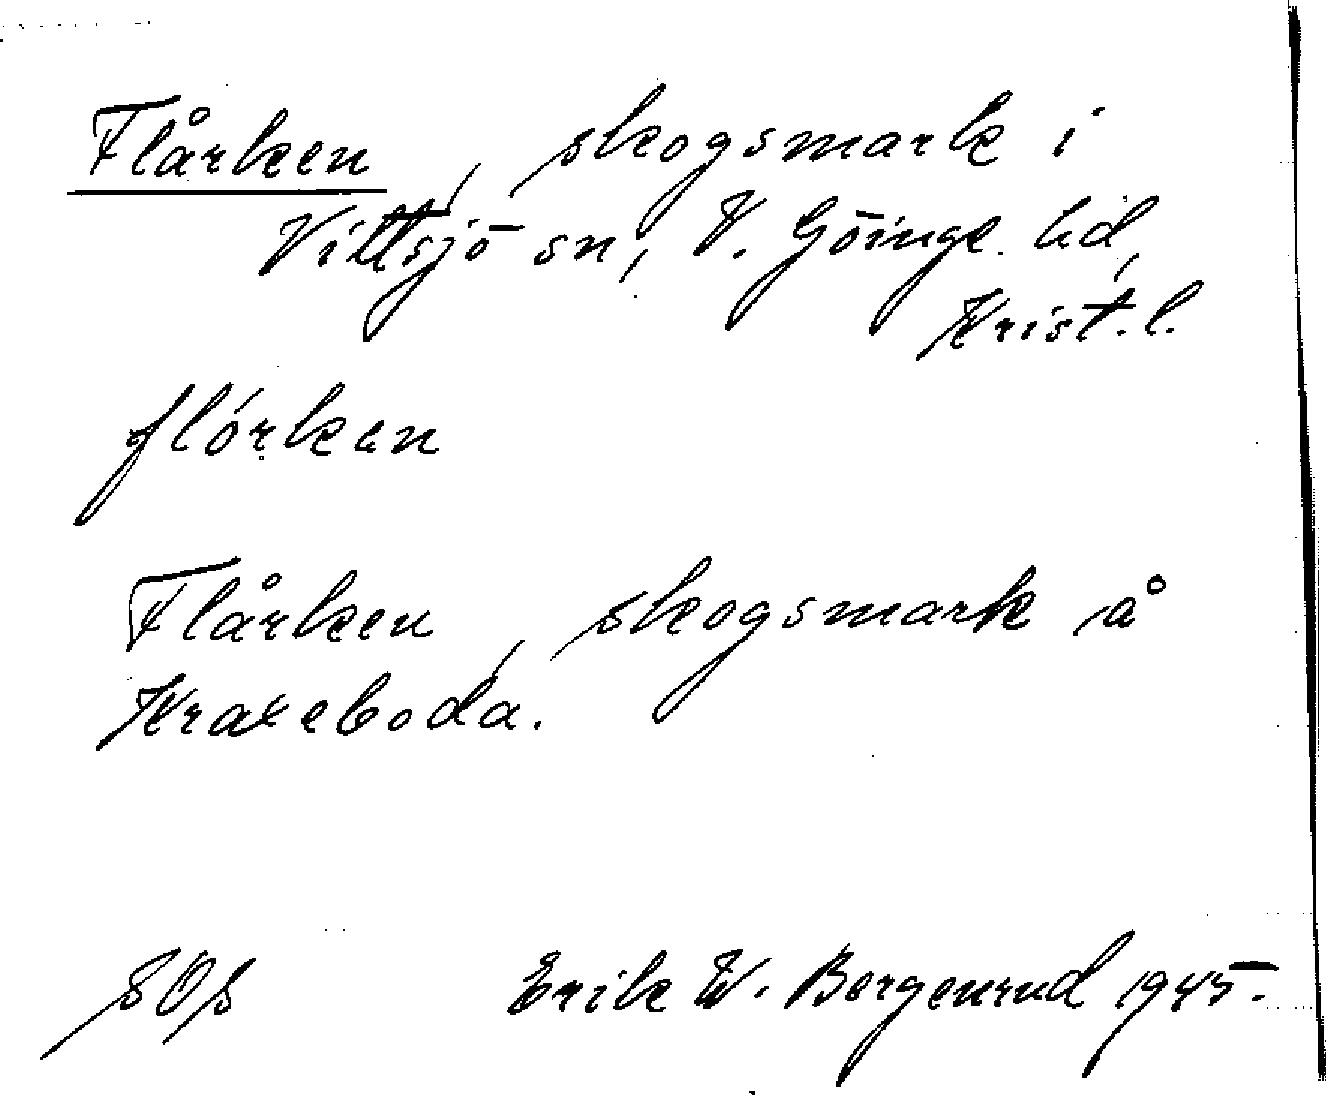 Flårken, skogsmark i
Vittsjö sn, V. Göinge hd,
Krist. l.
flórkan
Flårken, skogsmark å
Krareboda.
SOS Erik W. Bergenrud 1945.